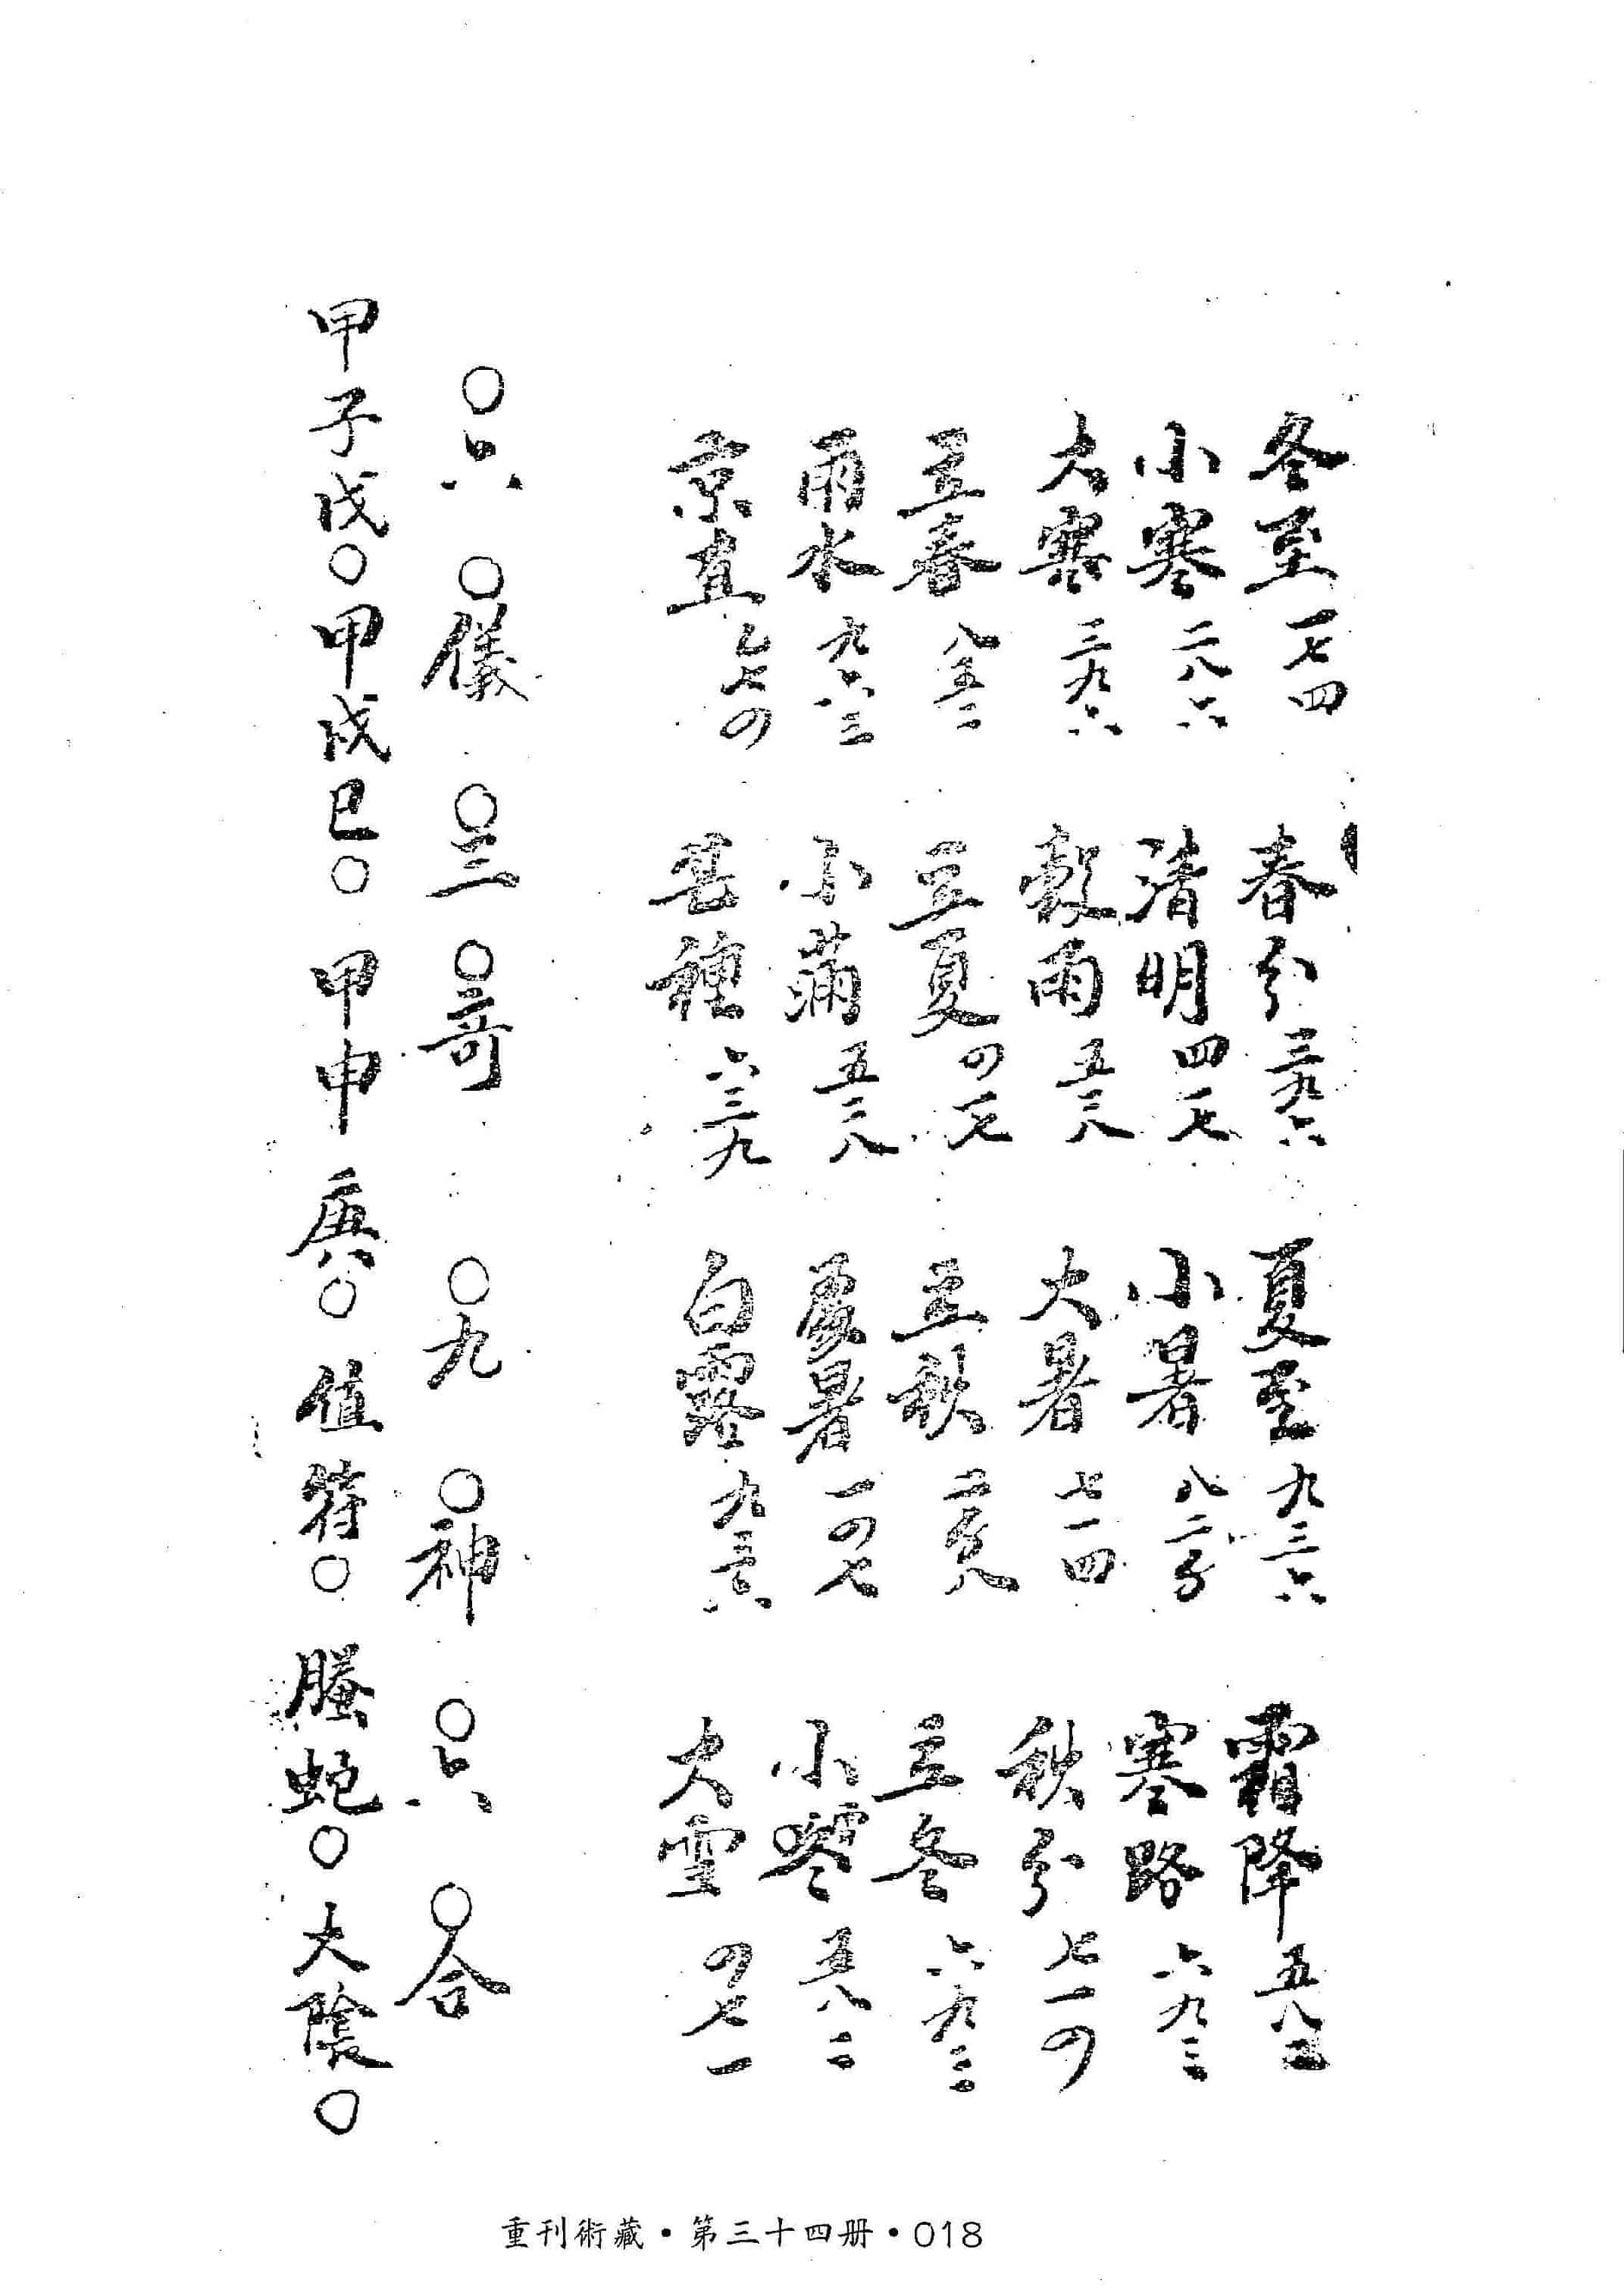 冬至一七四 春分三九六 夏至九三六 霜降五八二
小寒二八六 清明四一七 小暑八二 寒路六九三
大寒三九六 穀雨五二八 大暑七一四 秋分七一四
立春八五二 立夏四一七 立秋二五八 立冬六九三
雨水九六三 小滿五二八 處暑一四七 小 五八二
京直 七四 芸種六三九 白露九三六 大雪四七一
○六○儀○三○奇○九○神○六○合
甲子戊○甲戌巳○甲申庚○值符○螣蛇○大陰○
重刊術藏·第三十四册·018